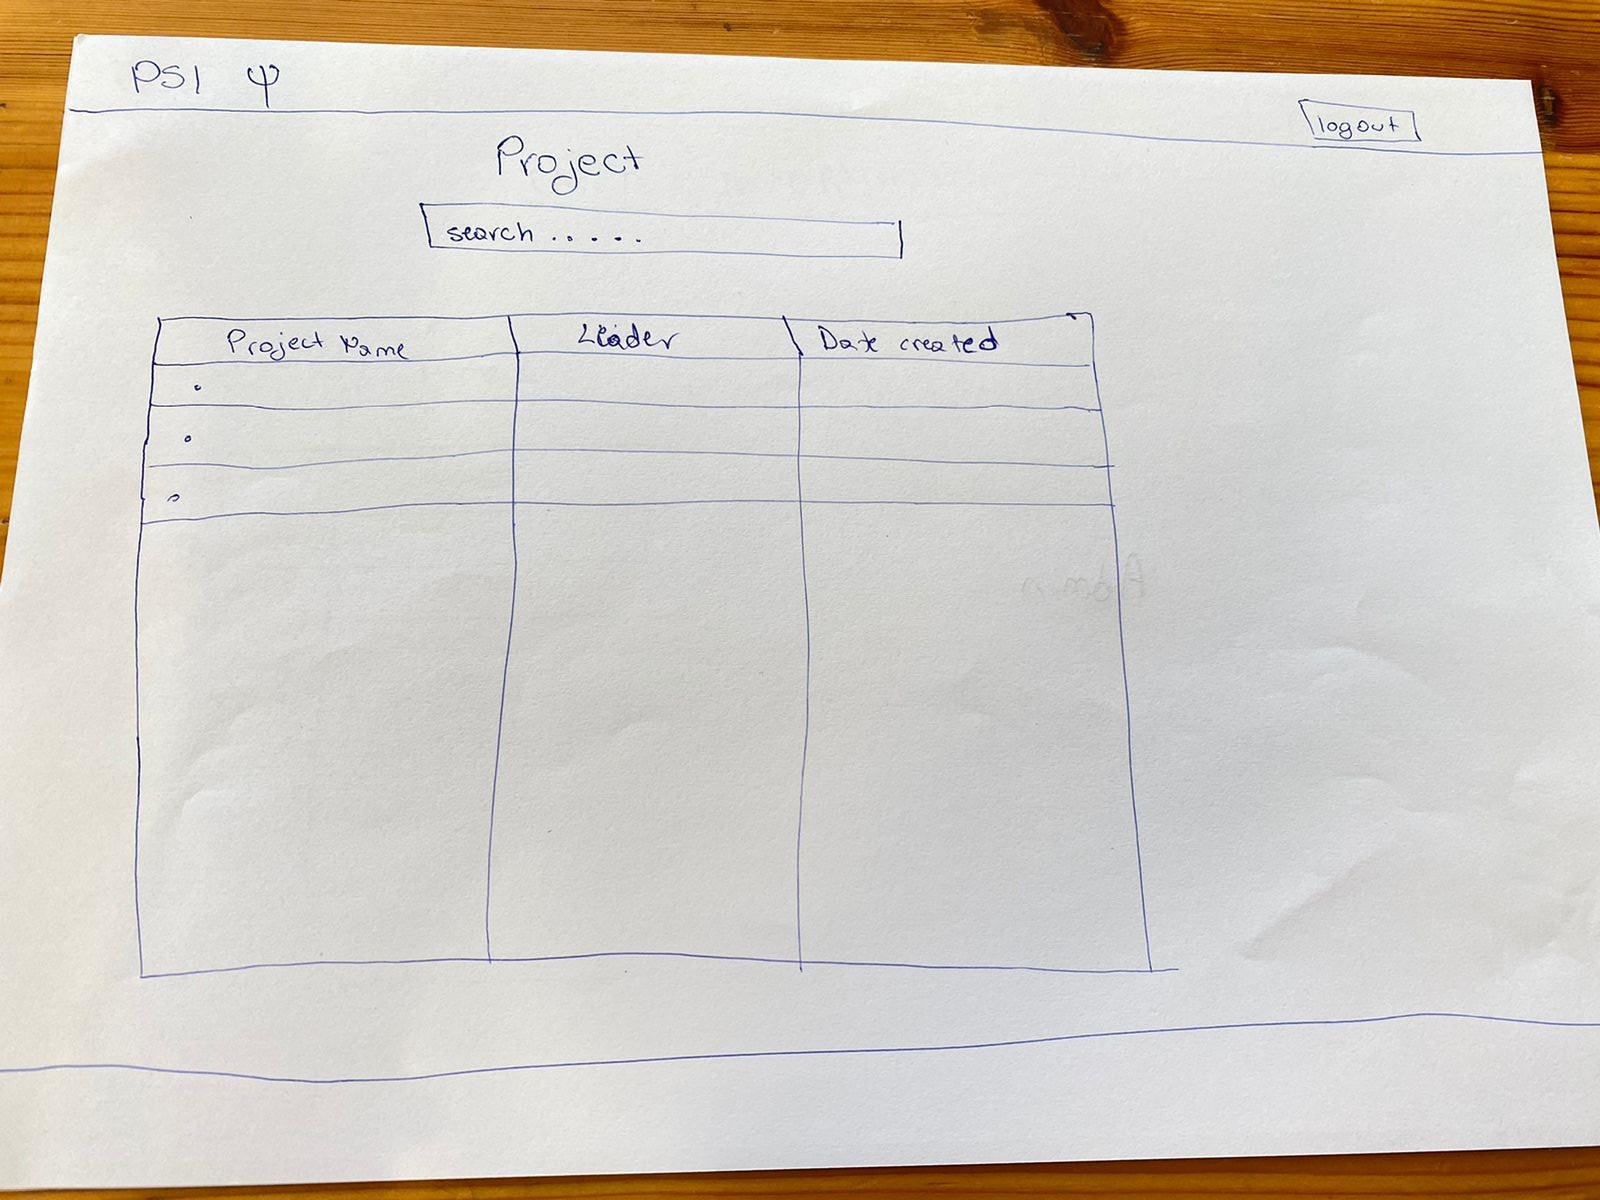 PSI ψ
logout
Project
search .....
Project Name Leader Date created
Admin